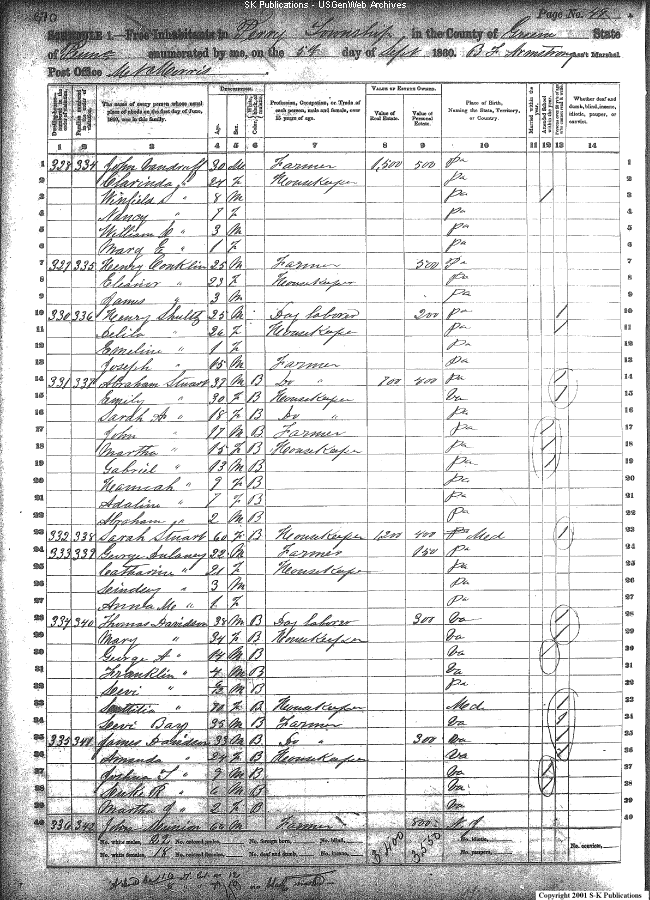 SK Publications - USGenWeb Archives
Page No. 48
SCHEDULE 1.—Free Inhabitants in Perry Township in the County of Green State
of Penna enumerated by me, on the 5th day of Sept 1860. B. F. Armstrong Ass't Marshal.
Post Office Mt Morris
DESCRIPTION. VALUE OF ESTATE OWNED.
The name of every person whose usual place of abode on the first day of June, 1860, was in this family.
Age. Sex.
Profession, Occupation, or Trade of each person, male and female, over 15 years of age.
Value of Real Estate. Value of Personal Estate.
Place of Birth, Naming the State, Territory, or Country.
Married within the year. Attended School within the year.
Whether deaf and dumb, blind, insane, idiotic, pauper, or convict.
1 2 3 4 5 6 7 8 9 10 11 12 13 14
1 328 334 John 30 M Farmer 1,500 500 Pa 1
2 Clarinda " 24 F Housekeeper Pa 2
3 Winfield S " 8 M Pa / 3
4 Nancy " 7 F Pa 4
5 William " 3 M Pa 5
6 Mary E " 1 F Pa 6
7 335 Henry Conklin 25 M Farmer 500 Pa 7
8 Eleaner " 23 F Housekeeper Pa 8
9 James " 3 M Pa 9
10 330 336 Henry Shultz 25 M Day laborer 200 Pa / 10
11 Delila " 26 F Housekeeper Pa / 11
12 Emeline " 1 F Pa 12
13 Joseph " 65 M Farmer Pa 13
14 331 337 Abraham Stuart 37 M B Do " 700 400 Pa / 14
15 Emily " 30 F B Housekeeper Va / 15
16 Sarah A " 18 F B Do " Pa 16
17 John " 17 M B Farmer Pa / 17
18 Martha " 15 F B Housekeeper Pa / 18
19 Gabriel " 13 M B Pa / 19
20 Hannah " 9 F B Pa 20
21 Adaline " 7 F B Pa 21
22 Abraham " 2 M B Pa 22
23 332 338 Sarah Stuart 60 F B Housekeeper 1,200 400 Med / 23
24 333 339 George Dulaney 22 M Farmer 150 Pa 24
25 Catharine " 21 F Housekeeper Pa 25
26 Lindsey " 3 M Pa 26
27 Anna M " 1 F Pa 27
28 334 340 Thomas Davidson 38 M B Day laborer 300 Va / 28
29 Mary " 34 F B Housekeeper Va / 29
30 George A " 14 M B Va / 30
31 Franklin " 4 M B Va 31
32 Levi " M B Pa 32
33 " 70 F B Housekeeper Med / 33
34 Levi Day 35 M B Farmer Va / 34
35 335 341 James Davidson 33 M B Do " 300 Va / 35
36 Amanda " 24 F B Housekeeper Va / 36
37 Joshua T " 9 M B Va / 37
38 R " 6 M B Va / 38
39 Martha J " 2 F B Va 39
40 336 342 John 64 M Farmer 800 N. J 40
No. white males, No. colored males, No. foreign born, No. blind,
No. white females, 18 No. colored females, No. deaf and dumb, No. insane,
3,400 3,550
No. idiotic, No. paupers, No. convicts,
Copyright 2001 S-K Publications